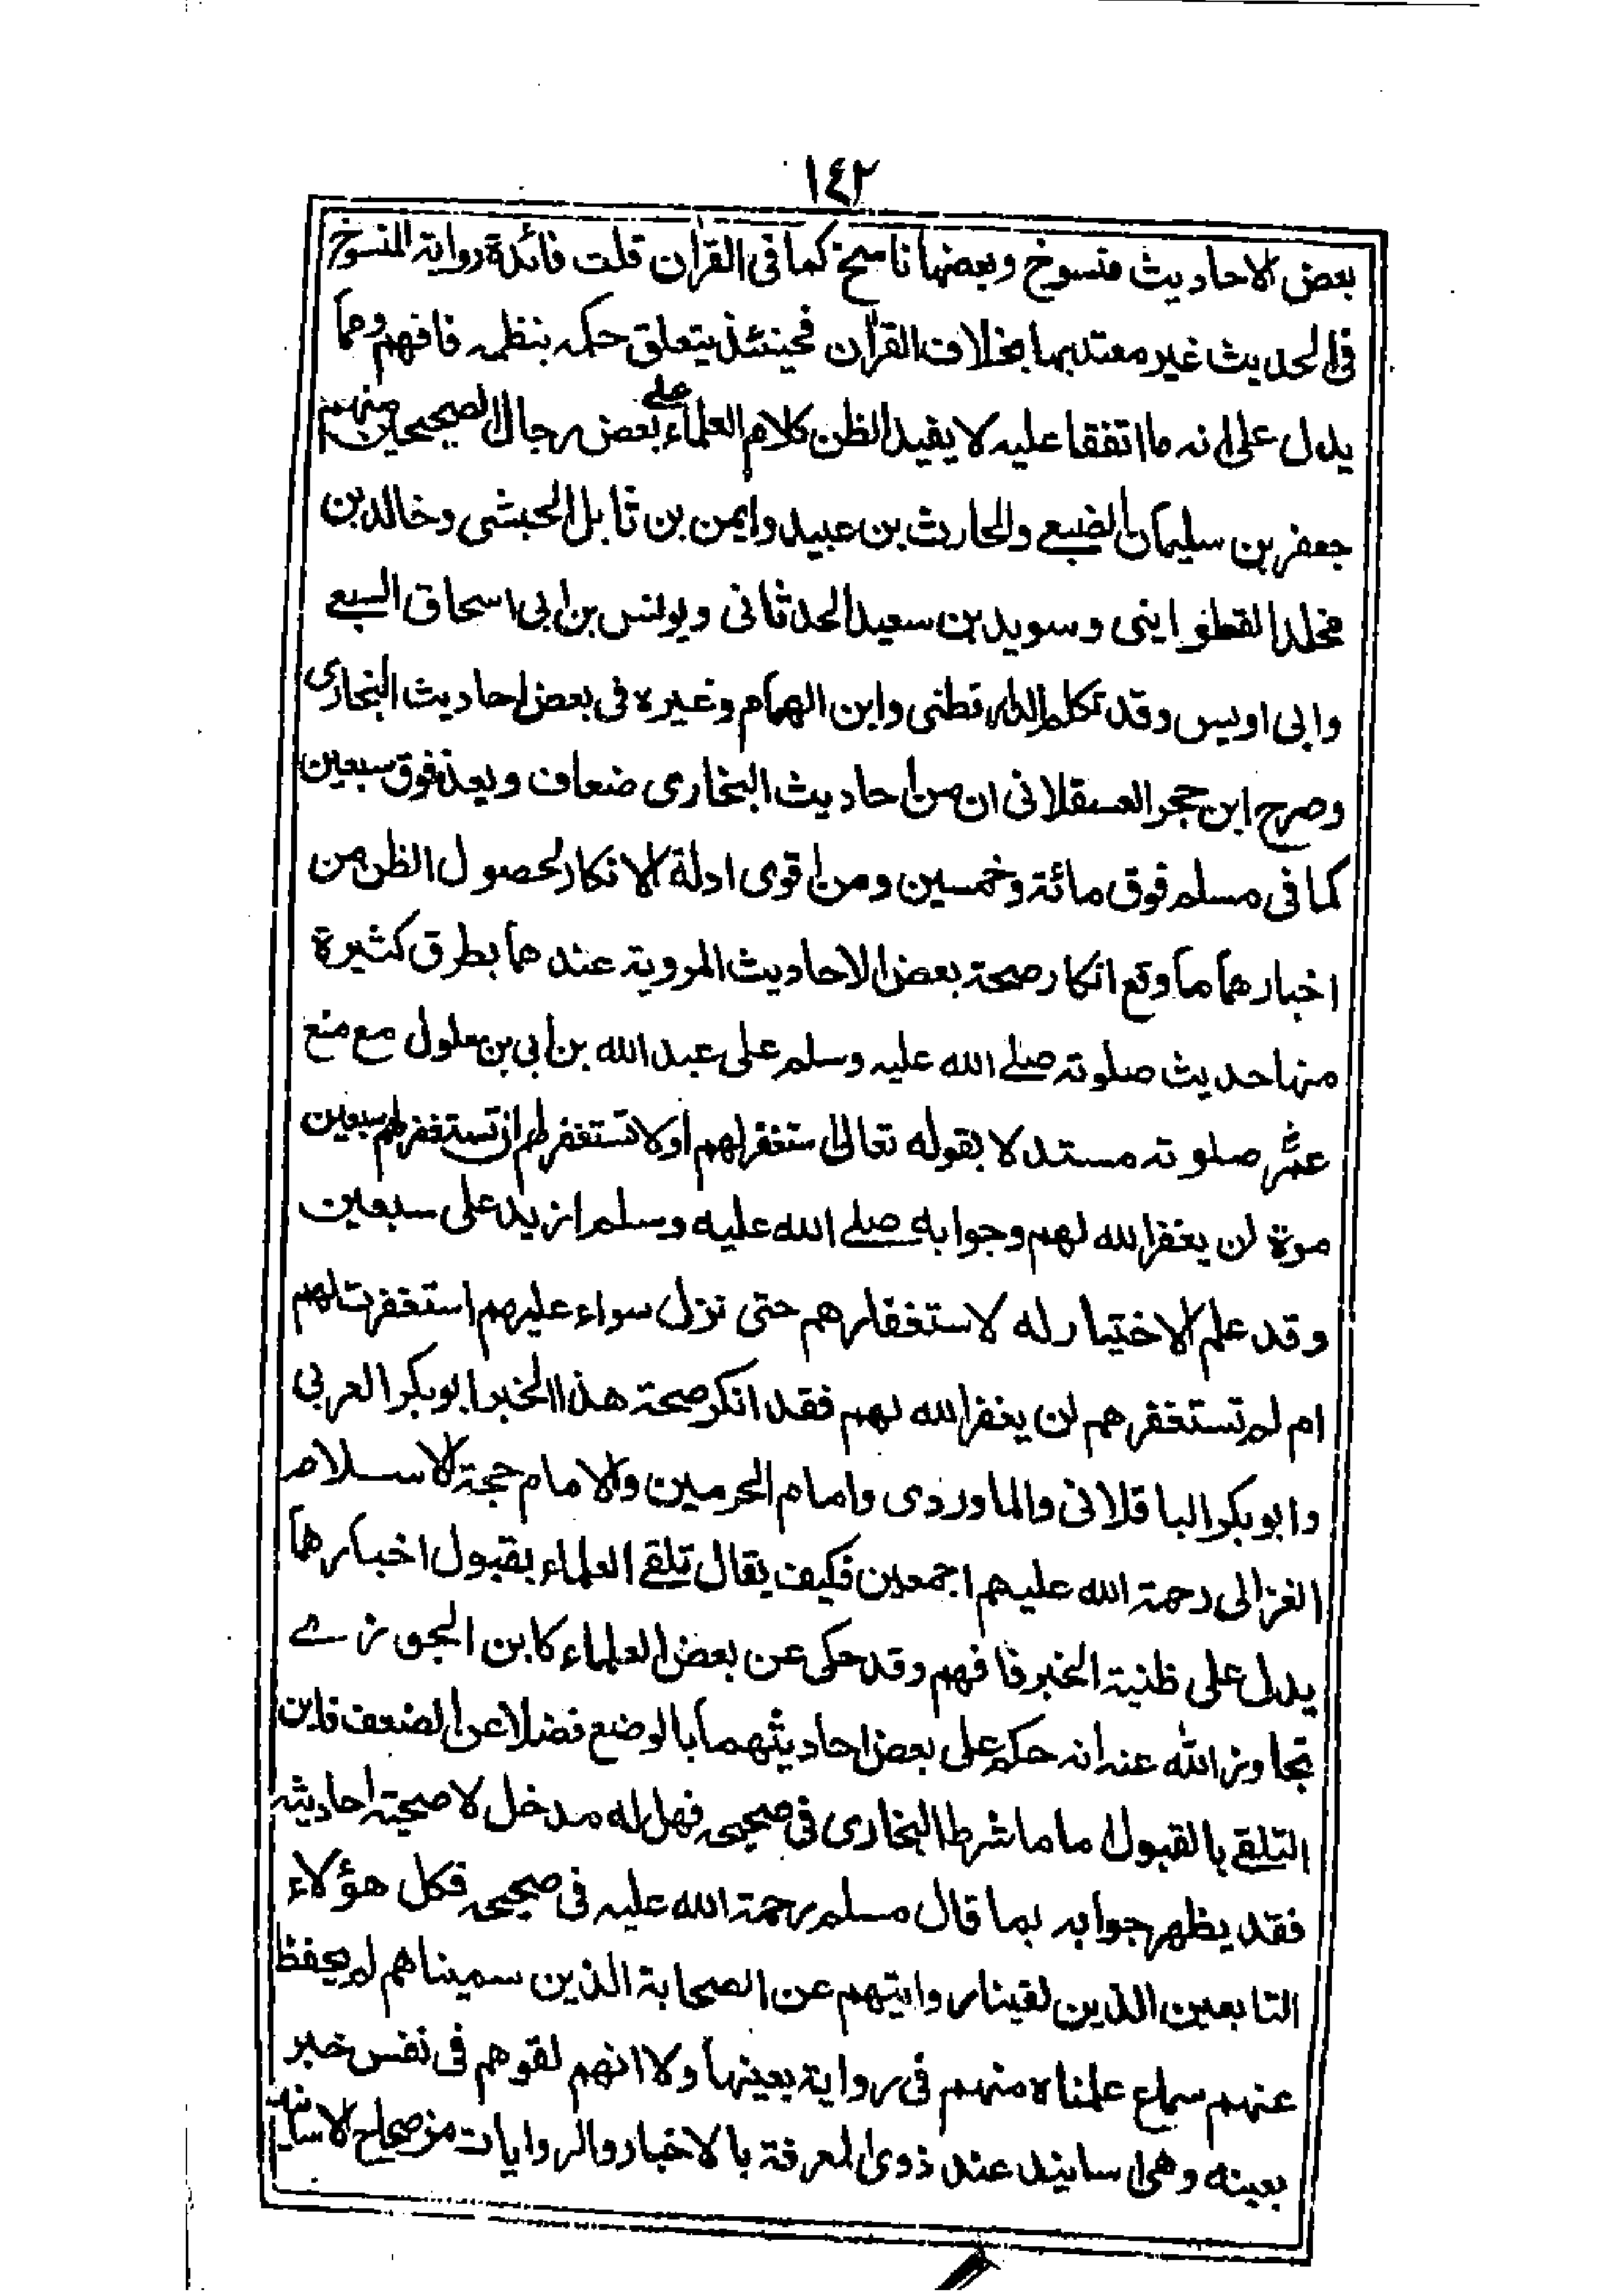 ١٤٢
بعض الاحاديث منسوخ وبعضها ناسخ كما فى القرأن قلت فائدة رواية المنسوخ
فى الحديث غير معتد بها بخلاف القرأن فحينئذ يتعلق حكمه بنظمه فافهم ومما
يدل على انه ما اتفقا عليه لا يفيد الظن كلام العلماء على بعض رجال الصحيحين منهم
جعفر بن سليمان الضبعى والحارث بن عبيد وايمن بن نابل الحبشى وخالد بن
مخلد القطوانى وسويد بن سعيد الحدثانى ويونس بن ابى اسحاق السبيعى
وابى اويس وقد تكلم الدارقطنى وابن الهمام وغيره فى بعض احاديث البخارى
وصرح ابن حجر العسقلانى ان من احاديث البخارى ضعاف ويعد فوق سبعين
كما فى مسلم فوق مائة وخمسين ومن اقوى ادلة الانكار لحصول الظن من
اخبارهما ما وقع انكار صحة بعض الاحاديث المروية عندهما بطرق كثيرة
منها حديث صلوته صلے الله عليه وسلم على عبد الله بن ابى بن سلول مع منع
عمر صلوته مستدلا بقوله تعالى استغفر لهم او لا تستغفر لهم ان تستغفر لهم سبعين
مرة لن يغفر الله لهم وجوابه صلے الله عليه وسلم ازيد على سبعين
وقد علم الاختيار له لاستغفارهم حتى نزل سواء عليهم استغفرت لهم
ام لم تستغفر هم لن يغفر الله لهم فقد انكر صحة هذا الخبر ابو بكر العربى
وابو بكر الباقلانى والماوردى وامام الحرمين والامام حجة الاسلام
الغزالى رحمة الله عليهم اجمعين فكيف يقال تلقے العلماء بقبول اخبارهما
يدل على ظنية الخبر فافهم وقد حكى عن بعض العلماء كابن الجوزے
تجاوز الله عنه انه حكم على بعض احاديثهما بالوضع فضلا عن الضعف فاين
التلقے بالقبول اما ما شرط البخارى فى صحيحه فهل له مدخل لاصحية احاديثه
فقد يظهر جوابه بما قال مسلم رحمة الله عليه فى صحيحه فكل هؤلاء
التابعين الذين لقينا روايتهم عن الصحابة الذين سميناهم لم يحفظ
عنهم سماع علمناه منهم فى رواية بعينها ولا انهم لقوهم فى نفس خبر
بعينه وهى اسانيد عند ذوى المعرفة بالاخبار والروايات من صحاح الاسانيد